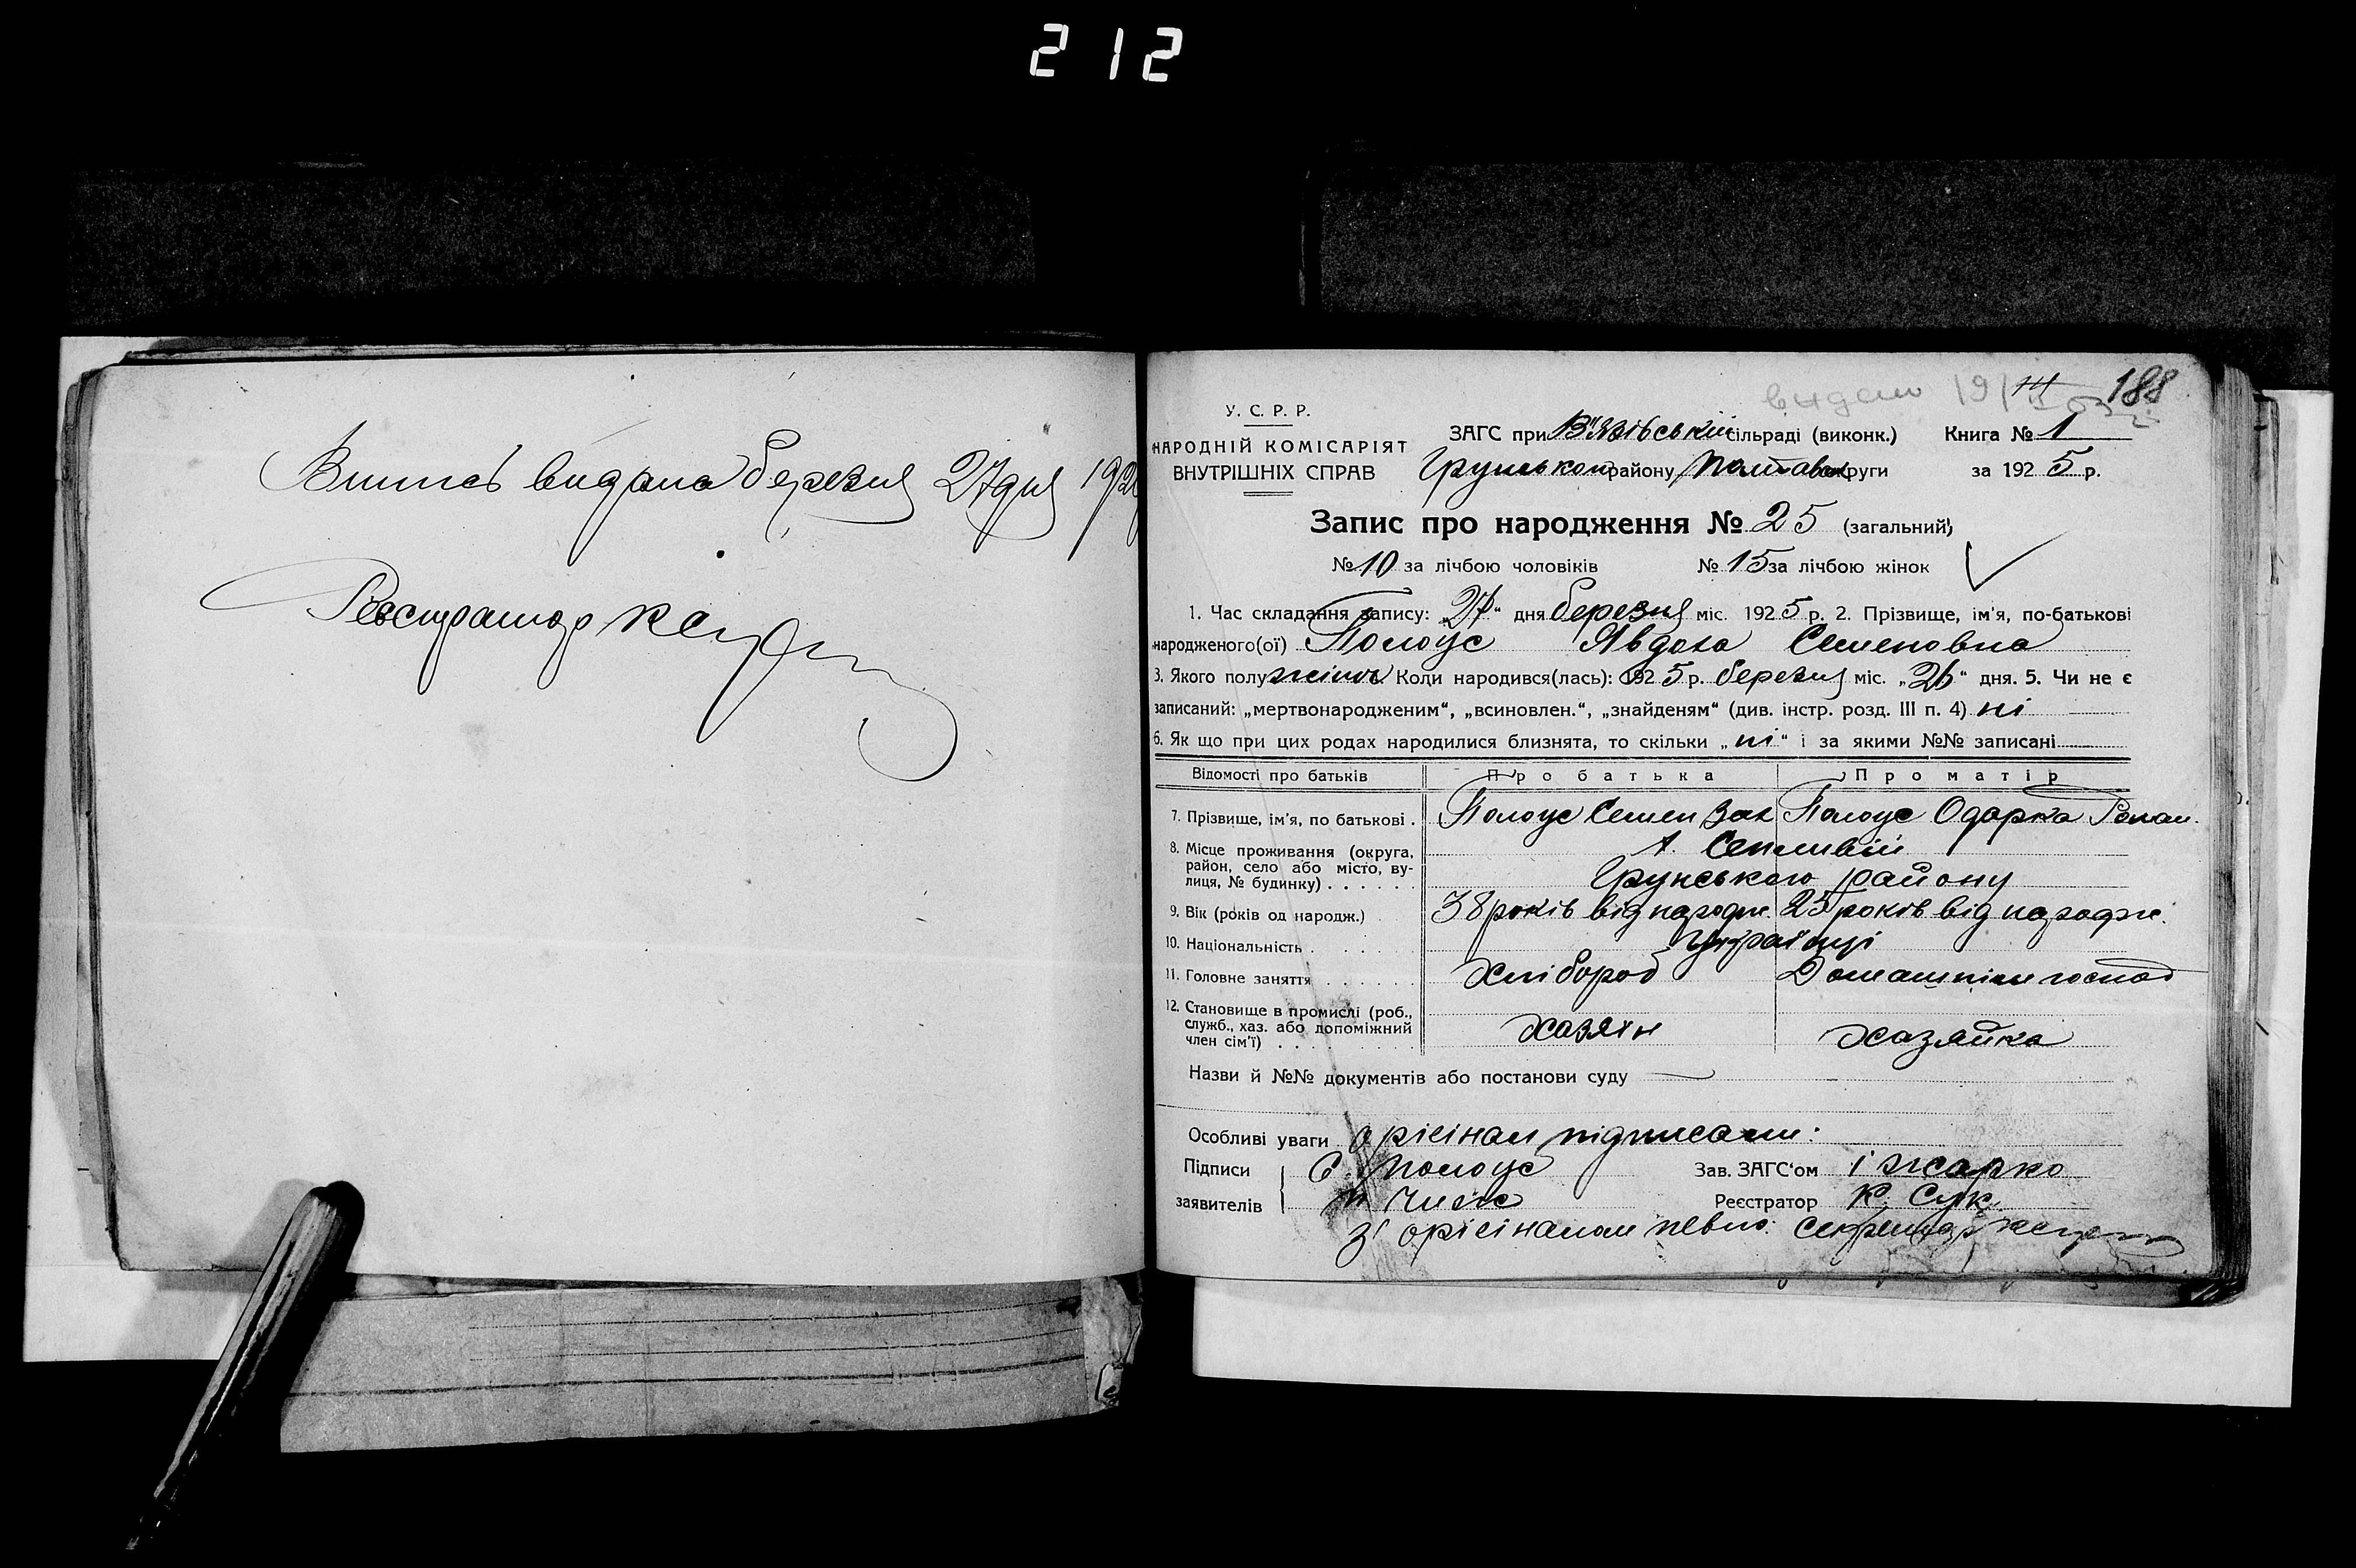 212
Випись видана березня 27 дня 192
Реєстратор К Сук
188
видано 19/
У. С. Р. Р.
НАРОДНІЙ КОМІСАРІЯТ
ВНУТРІШНІХ СПРАВ
ЗАГС при В'язівській сільраді (виконк.) Книга № 1
Грунськом району Полтавськ округи за 1925 р.
Запис про народження № 25 (загальний)
№ 10 за лічбою чоловіків № 15 за лічбою жінок
1. Час складання запису: „27“ дня березня міс. 1925 р. 2. Прізвище, ім'я, по-батькові
народженого(ої) Полоус Явдоха Семеновна
3. Якого полу жіноч. Коли народився(лась): 1925 р. березня міс. „26“ дня. 5. Чи не є
записаний: „мертвонародженим“, „всиновлен.“, „знайденям“ (див. інстр. розд. III п. 4) ні
6. Як що при цих родах народилися близнята, то скільки „ні“ і за якими №№ записані
Відомості про батьків Про батька Про матір
7. Прізвище, ім'я, по батькові . Полоус Семен Зах Полоус Одарка Роман.
8. Місце проживання (округа,
район, село або місто, ву-
лиця, № будинку) . . . . . .
Грунського району
9. Вік (років од народж.) 38 років від народж. 25 років від народж.
10. Національність . . . . . Українці
11. Головне заняття . . . . . . Хлібороб Домашнім господ
12. Становище в промислі (роб.,
служб., хаз. або допоміжний
член сім'ї) . . . . . . . . .
Хазяїн Хазяйка
Назви й №№ документів або постанови суду
Особливі уваги орігінал підписали:
Підписи С. Полоус Зав. ЗАГС'ом І Жарко
заявителів Чиж Реєстратор К. Сук
З орігіналом певно: секретар